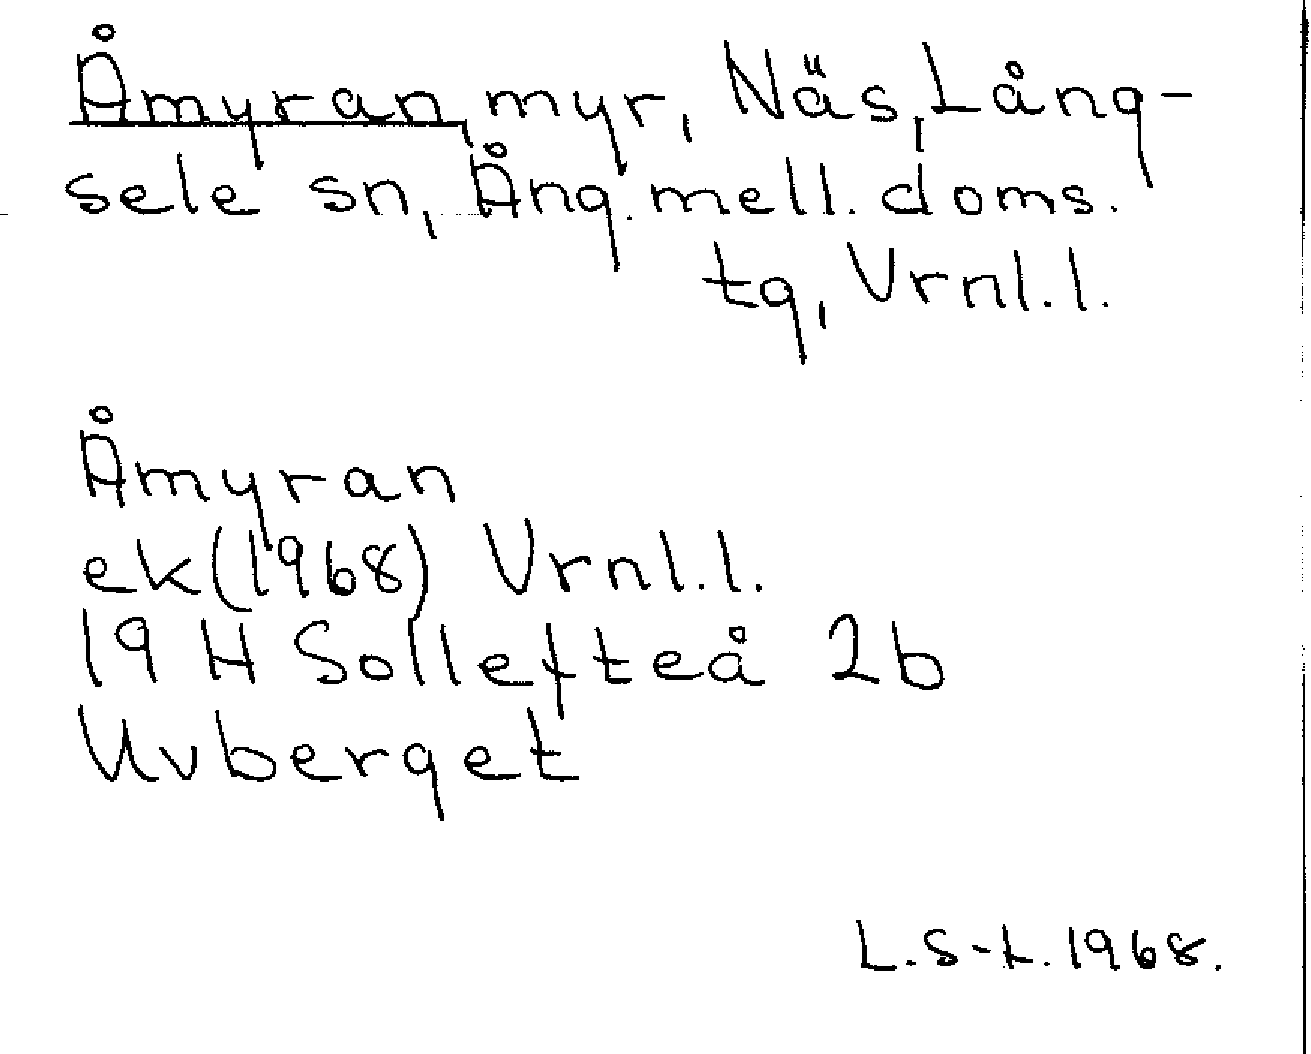 Åmyran, myr, Näs, Lång-
sele sn, Ång. mell. doms.
tg, Vrnl.l.
Åmyran
ek(1968) Vrnl.l.
19 H Sollefteå 2b
Uvberget
L.S-L. 1968.